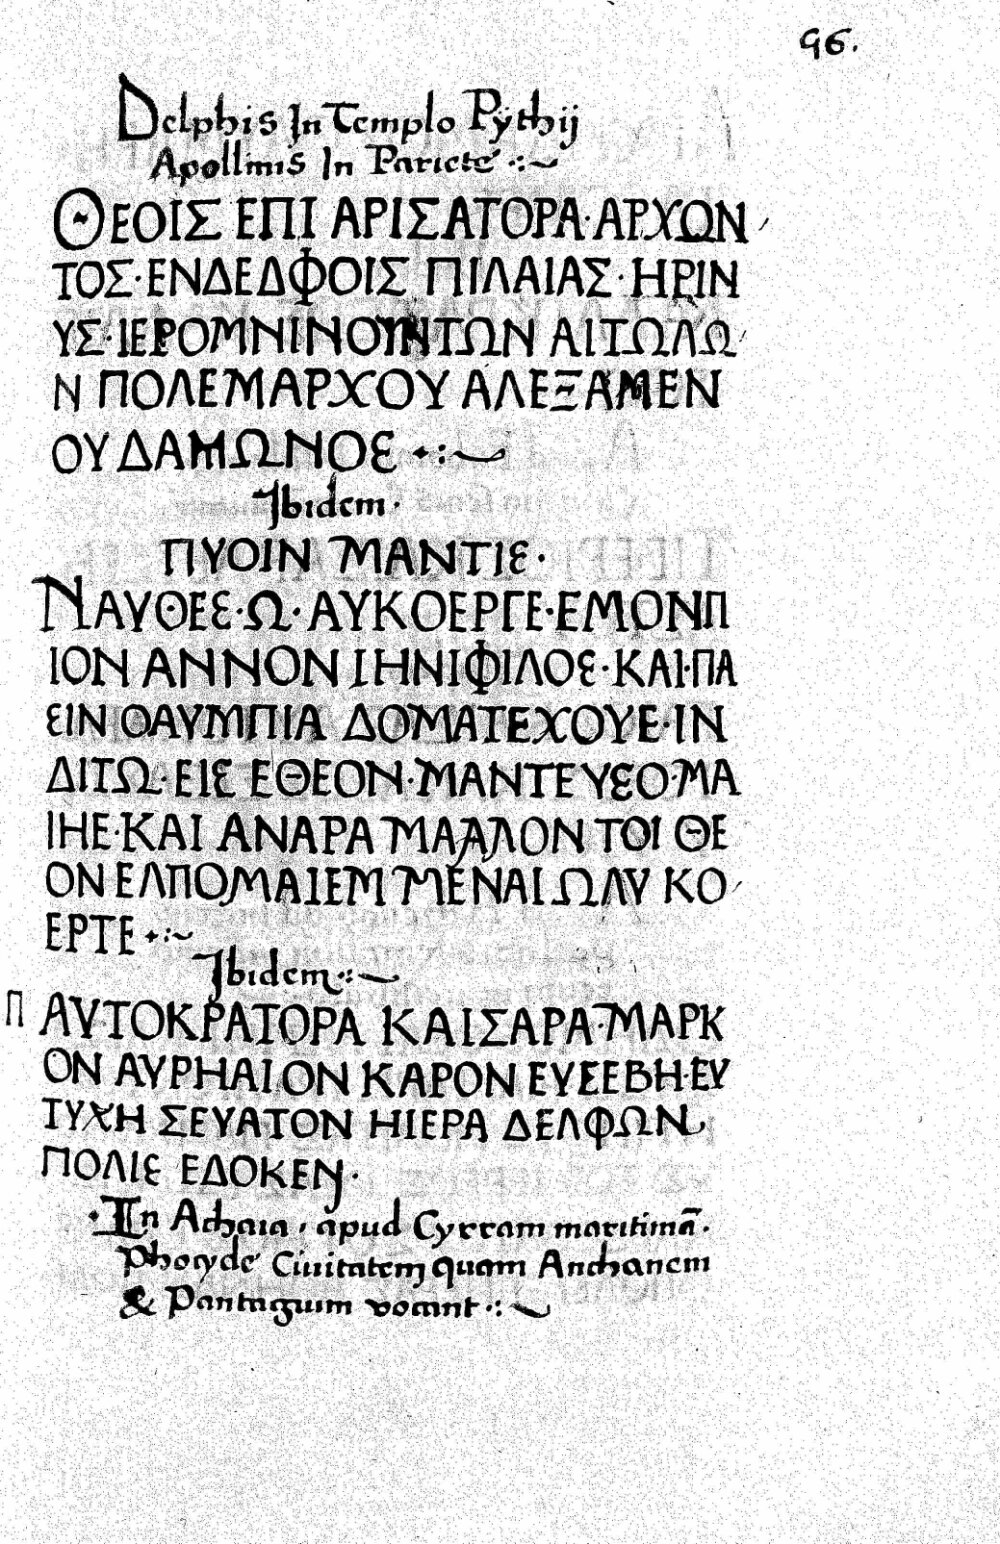 96.
Delphis In Templo Pythij
Apollinis In Pariete
ΘΕΟΙΣ ΕΠΙ ΑΡΙΣΑΤΟΡΑ·ΑΡΧΩΝ
ΤΟΣ·ΕΝΔΕΔΦΟΙΣ ΠΙΛΑΙΑΣ·ΗΡΙΝ
ΥΣ·ΙΕΡΟΜΝΙΝΟΥΝΤΩΝ ΑΙΤΩΛΩ
Ν ΠΟΛΕΜΑΡΧΟΥ ΑΛΕΞΑΜΕΝ
ΟΥ ΔΑΜΩΝΟΕ
Ibidem·
ΠΥΟΙΝ ΜΑΝΤΙΕ·
ΝΑΥΘΕΕ·Ω·ΑΥΚΟΕΡΓΕ·ΕΜΟΝΠ
ΙΟΝ ΑΝΝΟΝ ΙΗΝΙΦΙΛΟΕ·ΚΑΙ·ΠΑ
ΕΙΝ ΟΑΥΜΠΙΑ ΔΟΜΑΤΕΧΟΥΕ·ΙΝ
ΔΙΤΩ·ΕΙΕ ΕΘΕΟΝ·ΜΑΝΤΕΥΕΟ·ΜΑ
ΙΗΕ·ΚΑΙ ΑΝΑΡΑ ΜΑΛΛΟΝ ΤΟΙ ΘΕ
ΟΝ ΕΛΠΟΜΑΙΕΜ ΜΕΝΑΙ ΩΛΥ ΚΟ
ΕΡΤΕ
Ibidem
Π ΑΥΤΟΚΡΑΤΟΡΑ ΚΑΙΣΑΡΑ·ΜΑΡΚ
ΟΝ ΑΥΡΗΑΙΟΝ ΚΑΡΟΝ ΕΥΣΕΒΗ·ΕΥ
ΤΥΧΗ ΣΕΥΑΤΟΝ ΗΙΕΡΑ ΔΕΛΦΩΝ
ΠΟΛΙΕ ΕΔΟΚΕΝ·
·In Achaia, apud Cyrram maritimā·
Phocyde Ciuitatem quam Anchanem
& Pantagium vocant